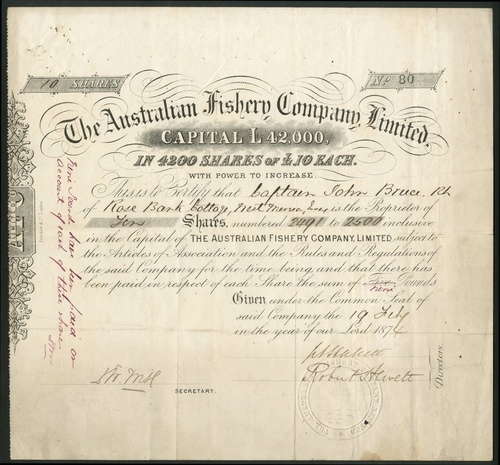 10 SHARES
No 80
The Australian Fishery Company, Limited,
CAPITAL £42,000,
IN 4200 SHARES OF £10 EACH.
WITH POWER TO INCREASE
This is to Certify that Captain John Bruce
of Rose Bank Cottage, is the Proprietor of
Ten Shares, numbered 2491 to 2500 inclusive
in the Capital of THE AUSTRALIAN FISHERY COMPANY, LIMITED, subject to
the Articles of Association and the Rules and Regulations of
the said Company for the time being, and that there has
been paid in respect of each Share the sum of Pounds
Given under the Common Seal of
said Company the 19 Feby
in the year of our Lord 1874
Robert Hewett
Directors.
SECRETARY.
paid on
account of each of these shares